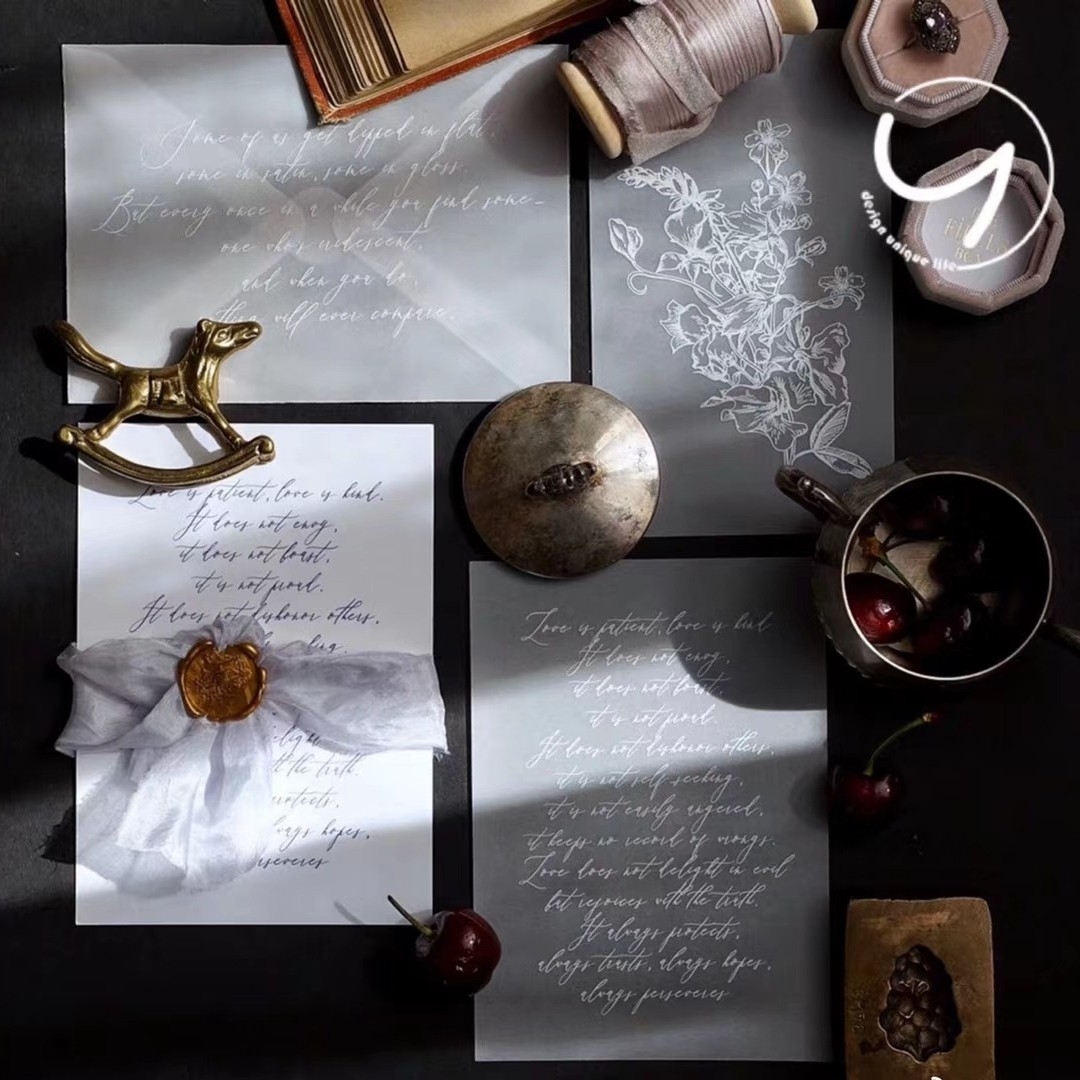 Some of us get dipped in flat,
some in satin, some in gloss.
But every once in a while you find some-
one who's iridescent,
and when you do,
will ever compare.
design unique life
THE
BOX
Love is patient, love is kind.
It does not envy,
it does not boast,
it is not proud.
It does not dishonor others,
delight
the truth.
protects,
always hopes,
perseveres
Love is patient, love is kind
It does not envy,
it does not boast,
it is not proud.
It does not dishonor others,
it is not self-seeking,
it is not easily angered,
it keeps no record of wrongs.
Love does not delight in evil
but rejoices with the truth.
It always protects,
always trusts, always hopes,
always perseveres